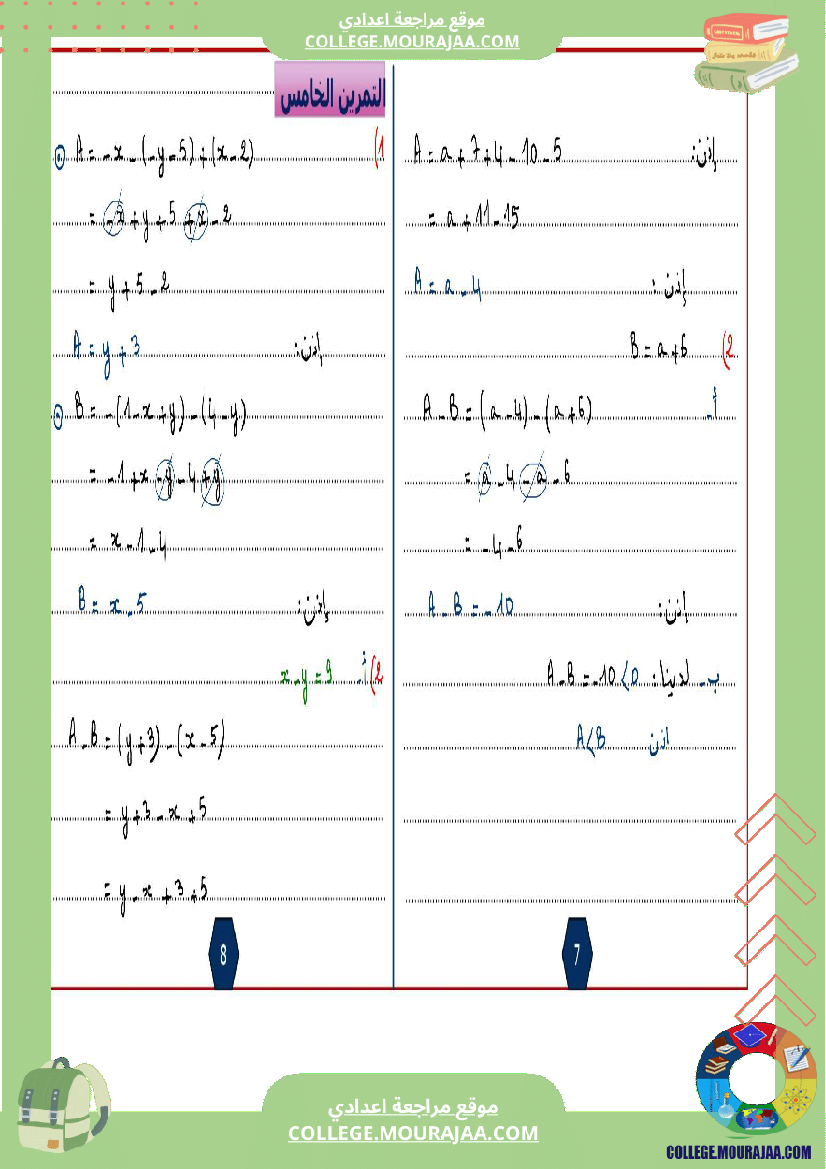 موقع مراجعة اعدادي
COLLEGE.MOURAJAA.COM
إذن: A = a + 7 + 4 - 10 - 5
= a + 11 - 15
إذن: A = a - 4
2) B = a + 6
أ- A - B = (a - 4) - (a + 6)
= a - 4 - a - 6
= -4 - 6
إذن: A - B = -10
ب- لدينا: A - B = -10 < 0
اذن A < B
7
التمرين الخامس
1) A = -x - (-y - 5) + (x - 2)
= -x + y + 5 + x - 2
= y + 5 - 2
إذن: A = y + 3
B = -(1 - x + y) - (4 - y)
= -1 + x - y - 4 + y
= x - 1 - 4
إذن: B = x - 5
2) أ- x - y = 9
A - B = (y + 3) - (x - 5)
= y + 3 - x + 5
= y - x + 3 + 5
8
موقع مراجعة اعدادي
COLLEGE.MOURAJAA.COM
COLLEGE.MOURAJAA.COM